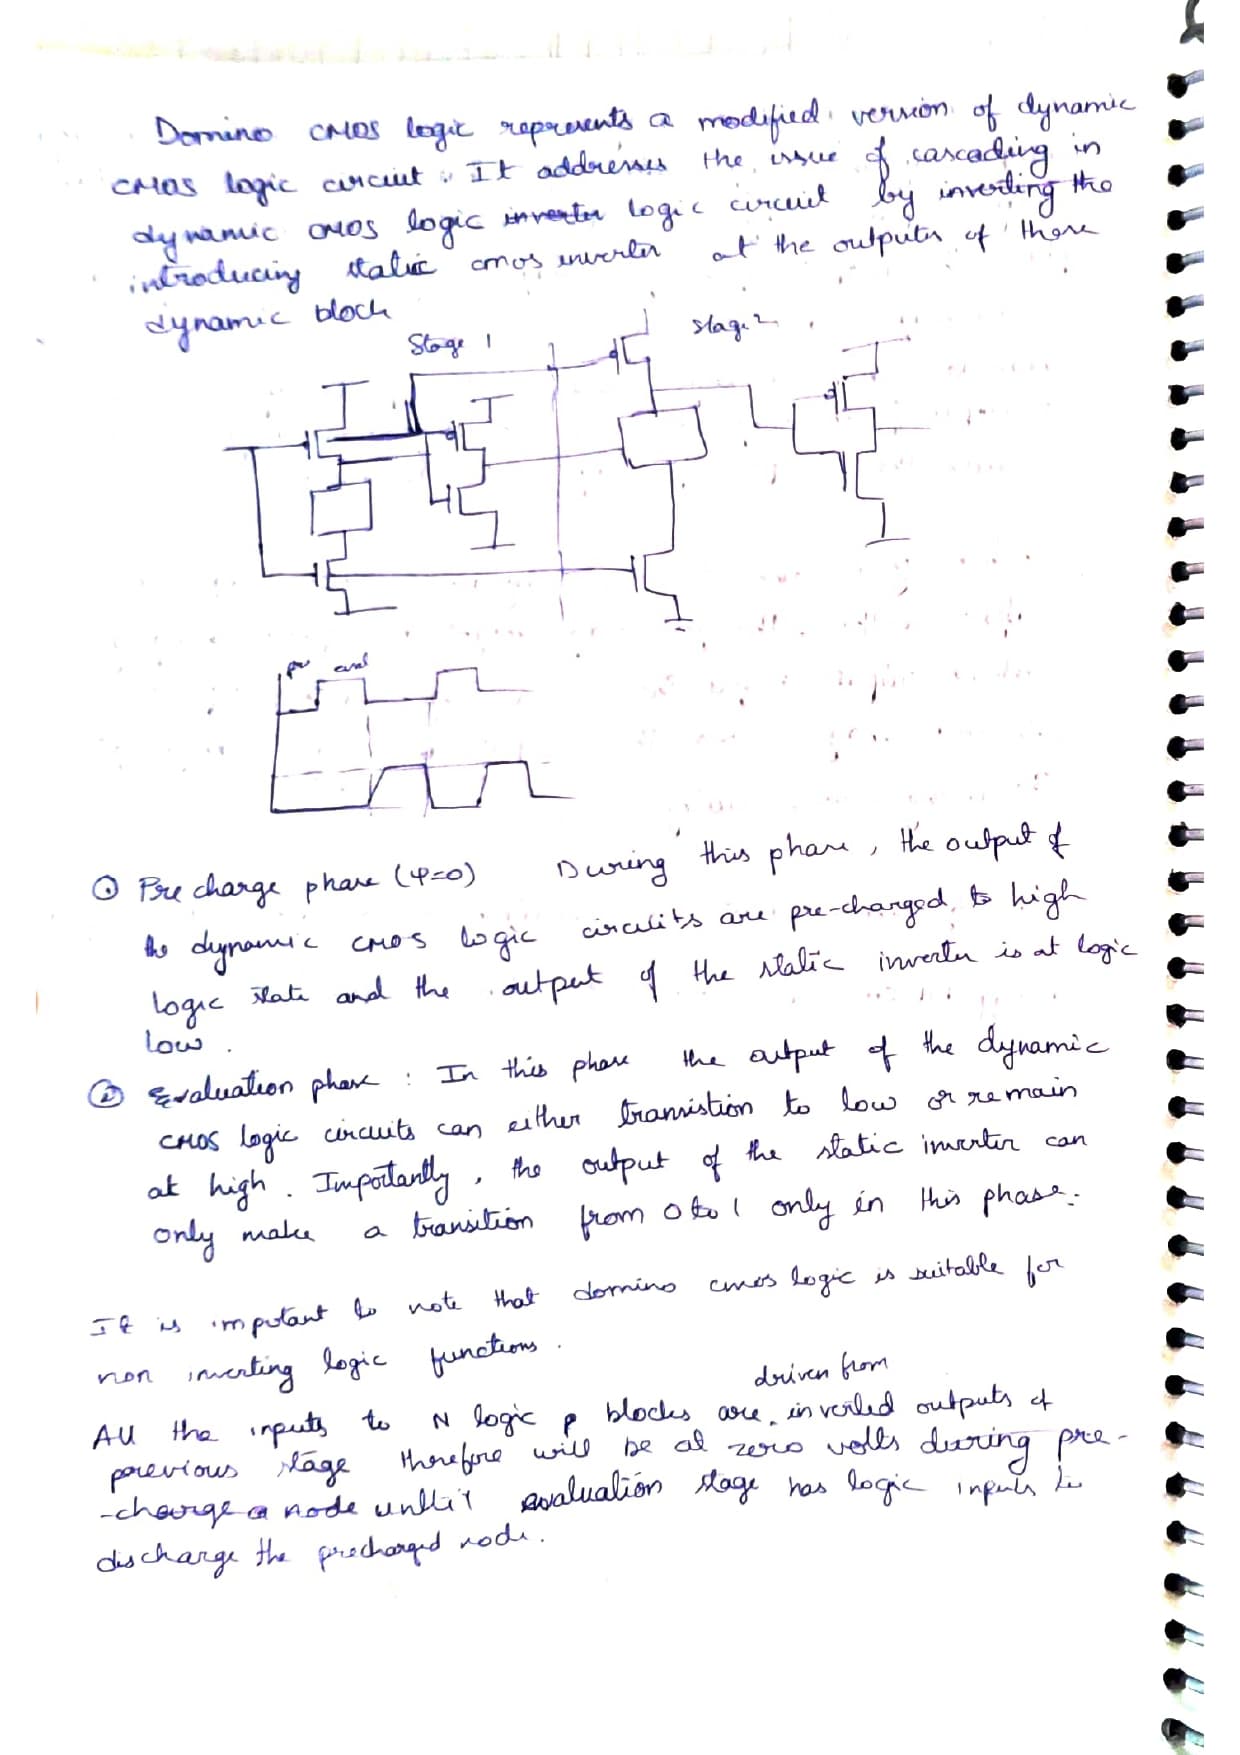 Domino CMOS logic represents a modified version of dynamic
CMOS logic circuit. It addresses the issue of cascading in
dynamic CMOS logic inverter logic circuit by inverting the
introducing static cmos inverter at the outputs of these
dynamic block
Stage 1
Stage 2
pre eval
① Pre charge phase (φ=0) During this phase, the output of
the dynamic CMOS logic circuits are pre-charged to high
logic state and the output of the static inverter is at logic
low.
② Evaluation phase : In this phase the output of the dynamic
CMOS logic circuits can either transistion to low or remain
at high. Importantly, the output of the static inverter can
only make a transition from 0 to 1 only in this phase.
It is important to note that domino cmos logic is suitable for
non inverting logic functions.
driven from
All the inputs to N logic p blocks are inverted outputs of
previous stage therefore will be at zero volts during pre-
-charge a node until evaluation stage has logic inputs to
discharge the precharged node.